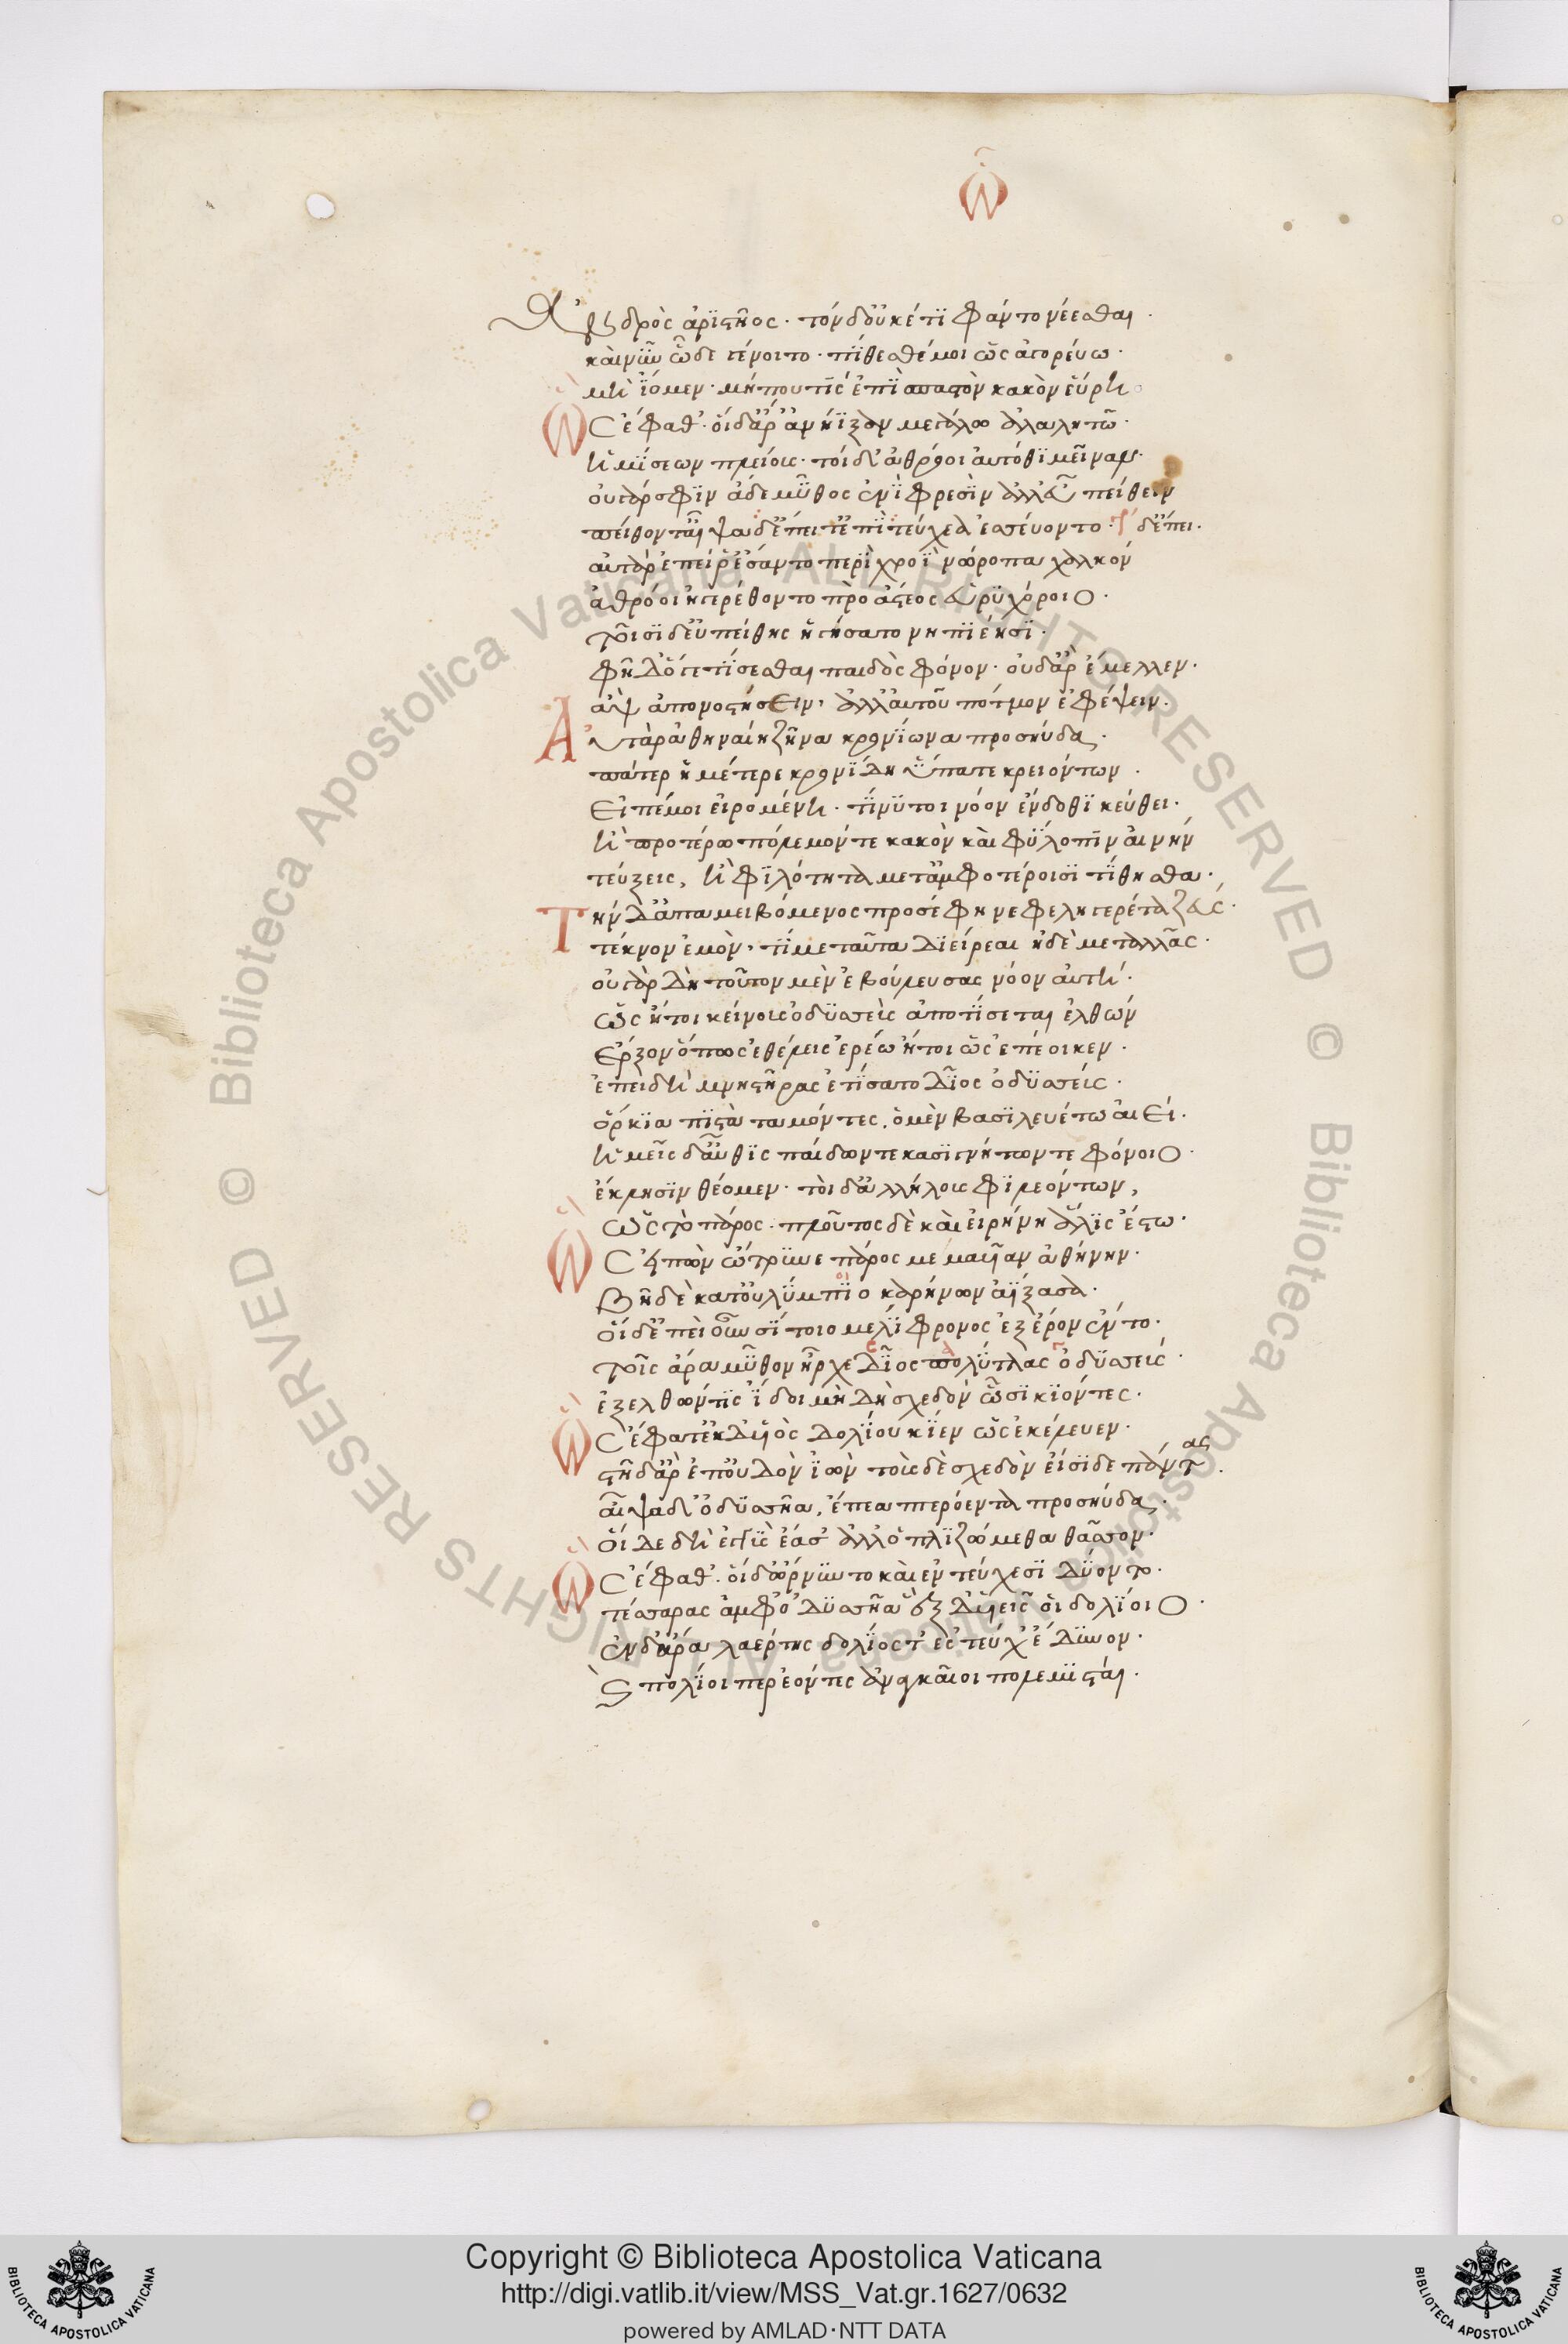 ὦ
Ἀνδρὸς ἀριστῆος· τόνδ' οὐκέτι φάντο νέεσθαι·
καὶ νῦν ὧδε γένοιτο· πίθεσθέ μοι ὡς ἀγορεύω·
μὴ ἴομεν· μήπου τίς ἐπίσπαστον κακὸν εὕρῃ·
Ὣς ἔφαθ'· οἱ δ' ἄρ' ἀνήϊξαν μεγάλῳ ἀλαλητῷ·
ἡμίσεων πλείους· τοὶ δ' ἀθρόοι αὐτόθι μεῖναν·
οὐ γάρ σφιν ἅδε μῦθος ἐνὶ φρεσὶν ἀλλ' εὐπείθειν
πείθοντ' αἶψα δ' ἔπειτ' ἐπὶ τεύχεα ἐσσεύοντο· δ' ἔπει·
αὐτὰρ ἐπεί ῥ' ἕσαντο περὶ χροῒ νώροπα χαλκόν
ἀθρόοι ἠγερέθοντο πρὸ ἄστεος εὐρυχόροιο·
τοῖσι δ' εὐπείθης ἡγήσατο νηπιέῃσι·
φῆ δ' ὅγε τίσεσθαι παιδὸς φόνον· οὐδ' ἄρ' ἔμελλεν·
ἂψ ἀπονοστήσειν, ἀλλ' αὐτοῦ πότμον ἐφέψειν·
Αὐτὰρ ἀθηναίη ζῆνα κρονίωνα προσηύδα·
πάτερ ἡμέτερε κρονίδη ὕπατε κρειόντων·
εἰπέ μοι εἰρομένῃ· τί νύ τοι νόον ἔνδοθι κεύθει·
ἢ προτέρω πόλεμόν τε κακὸν καὶ φύλοπιν αἰνήν
τεύξεις, ἢ φιλότητα μετ' ἀμφοτέροισι τίθησθα·
Τὴν δ' ἀπαμειβόμενος προσέφη νεφεληγερέτα ζεύς·
τέκνον ἐμὸν, τί με ταῦτα διείρεαι ἠδὲ μεταλλᾷς·
οὐ γὰρ δὴ τοῦτον μὲν ἐβούλευσας νόον αὐτή·
ὡς ἤτοι κείνους ὀδυσσεὺς ἀποτίσεται ἐλθών
ἔρξον ὅπως ἐθέλεις ἐρέω ἤτοι ὡς ἐπέοικεν·
ἐπειδὴ μνηστῆρας ἐτίσατο δῖος ὀδυσσεύς·
ὅρκια πιστὰ ταμόντες, ὁ μὲν βασιλευέτω αἰεί·
ἡμεῖς δ' αὖθις παίδων τε κασιγνήτων τε φόνοιο·
ἔκλησιν θέομεν· τοὶ δ' ἀλλήλους φιλεόντων,
ὡς τὸ πάρος· πλοῦτος δὲ καὶ εἰρήνη ἅλις ἔστω·
Ὣς εἰπὼν ὤτρυνε πάρος μεμαυῖαν ἀθήνην·
βῆ δὲ κατ' οὐλύμποιο καρήνων ἀΐξασα·
οἱ δ' ἐπεὶ οὖν σίτοιο μελίφρονος ἐξ ἔρον ἕντο·
τοῖς ἄρα μύθον ἦρχε δῖος πολύτλας ὀδυσσεύς·
ἐξελθών τις ἴδοι μὴ δὴ σχεδὸν ὦσι κιόντες·
Ὣς ἔφατ' ἐκ δ' υἱὸς δολίου κίεν ὡς ἐκέλευεν·
στῆ δ' ἄρ' ἐπ' οὐδὸν ἰὼν τοὺς δὲ σχεδὸν εἴσιδε πάντας·
αἶψα δ' ὀδυσσῆα, ἔπεα πτερόεντα προσηύδα·
οἵδε δὴ ἐγγὺς ἔασ' ἀλλ' ὁπλιζώμεθα θᾶσσον·
Ὣς ἔφαθ'· οἱ δ' ὤρνυντο καὶ ἐν τεύχεσι δύοντο·
τέσσαρας ἀμφ' ὀδυσσῆα ἓξ δ' υἱεῖς οἱ δολίοιο·
ἐν δ' ἄρα λαέρτης δολίος τ' ἐς τεύχε' ἔδυνον·
καὶ πολιοί περ ἐόντες ἀναγκαῖοι πολεμισταί·
Copyright © Biblioteca Apostolica Vaticana
http://digi.vatlib.it/view/MSS_Vat.gr.1627/0632
powered by AMLAD·NTT DATA
BIBLIOTECA APOSTOLICA VATICANA
BIBLIOTECA APOSTOLICA VATICANA
© Biblioteca Apostolica Vaticana ALL RIGHTS RESERVED
© Biblioteca Apostolica Vaticana ALL RIGHTS RESERVED